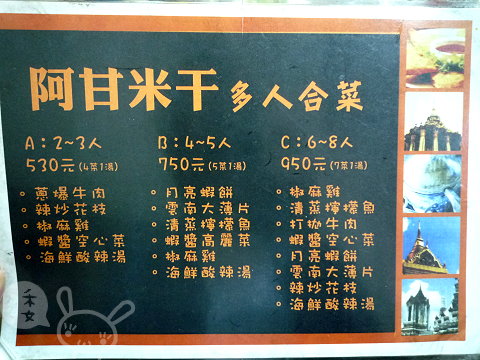 阿甘米干 多人合菜
A:2~3人
530元(4菜1湯)
。蔥爆牛肉
。辣炒花枝
。椒麻雞
。蝦醬空心菜
。海鮮酸辣湯
B:4~5人
750元(5菜1湯)
。月亮蝦餅
。雲南大薄片
。清蒸檸檬魚
。蝦醬高麗菜
。椒麻雞
。海鮮酸辣湯
C:6~8人
950元(7菜1湯)
。椒麻雞
。清蒸檸檬魚
。打拋牛肉
。蝦醬空心菜
。月亮蝦餅
。雲南大薄片
。辣炒花枝
。海鮮酸辣湯
禾女